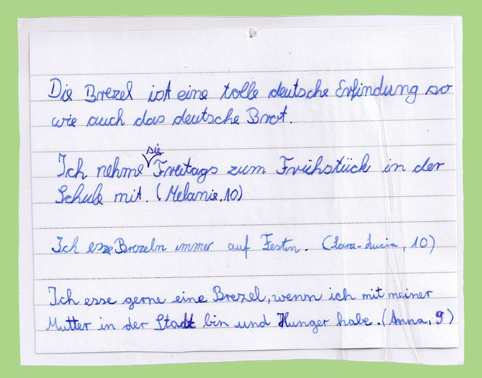 Die Brezel ist eine tolle deutsche Erfindung so
wie auch das deutsche Brot.
Ich nehme sie Freitags zum Frühstück in der
Schule mit. (Melanie, 10)
Ich esse Brezeln immer auf Festen. (Lara-Lucia, 10)
Ich esse gerne eine Brezel, wenn ich mit meiner
Mutter in der Stadt bin und Hunger habe. (Anna, 9)